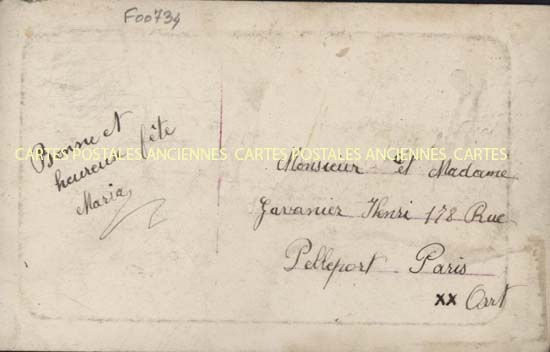 F00734
Bonne et
heureuse fête
Maria
CARTES POSTALES ANCIENNES CARTES POSTALES ANCIENNES CARTES
Monsieur et Madame
Javanier Henri 178 Rue
Pelleport Paris
xx Art